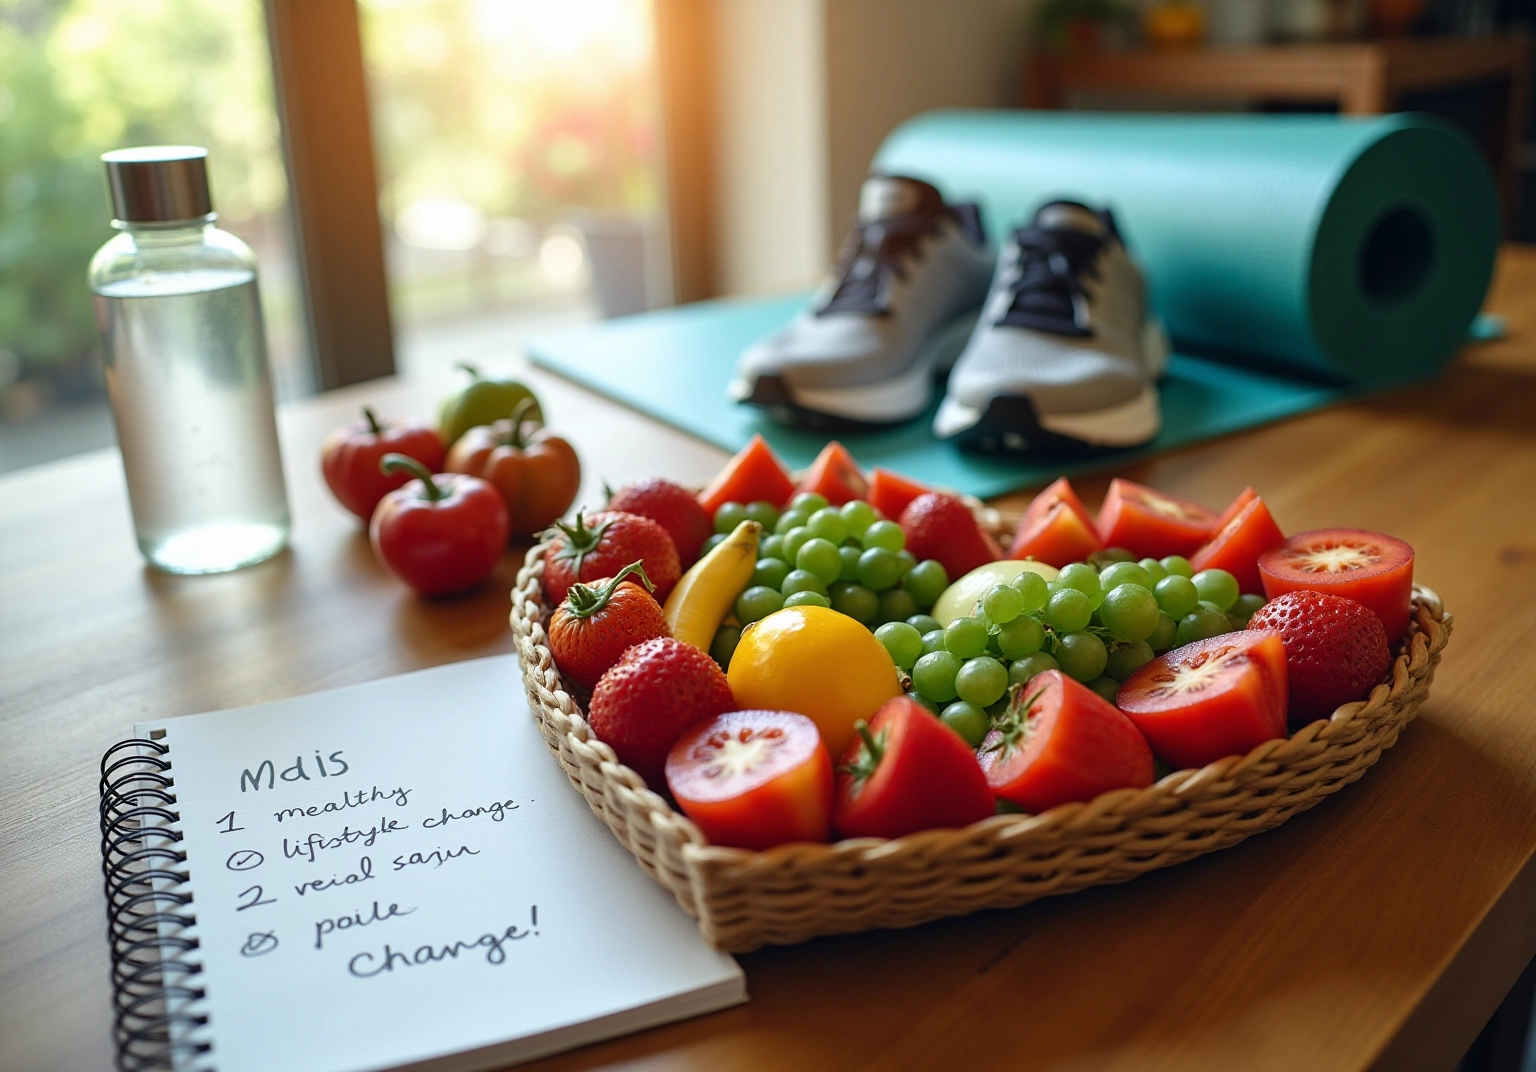 Mdis
1 mealthy
lifistyle change.
2 veial sajin
poile
Change!